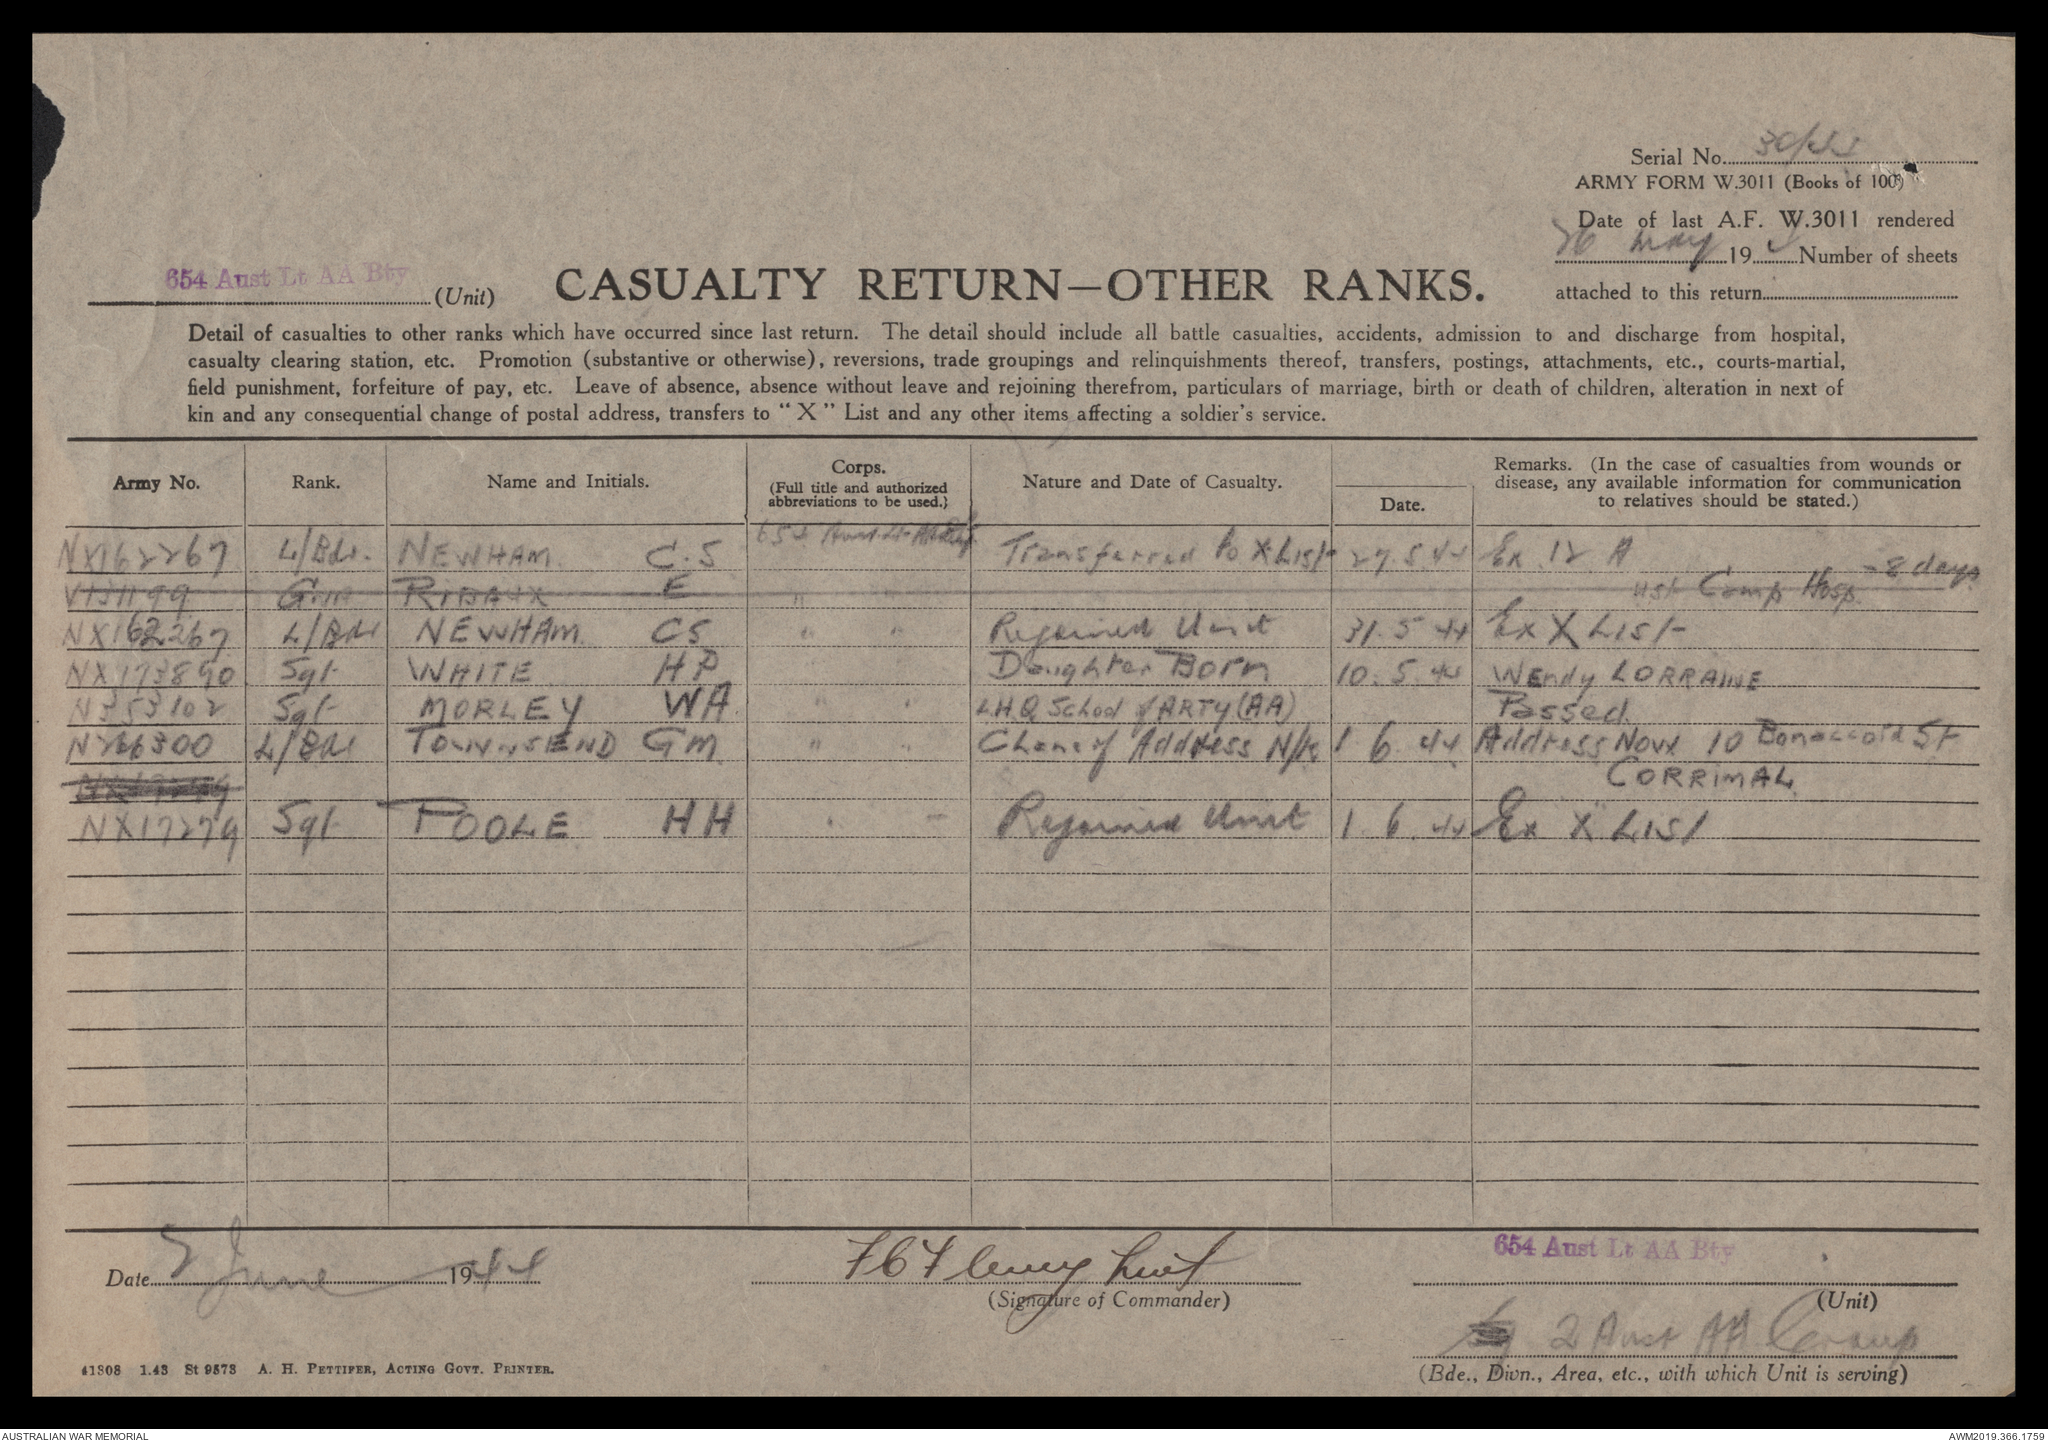 Serial No.
ARMY FORM W.3011 (Books of 100)
Date of last A.F. W.3011 rendered
26 May 19 Number of sheets
attached to this return
654 Aust Lt AA Bty (Unit)
CASUALTY RETURN—OTHER RANKS.
Detail of casualties to other ranks which have occurred since last return. The detail should include all battle casualties, accidents, admission to and discharge from hospital,
casualty clearing station, etc. Promotion (substantive or otherwise), reversions, trade groupings and relinquishments thereof, transfers, postings, attachments, etc., courts-martial,
field punishment, forfeiture of pay, etc. Leave of absence, absence without leave and rejoining therefrom, particulars of marriage, birth or death of children, alteration in next of
kin and any consequential change of postal address, transfers to "X" List and any other items affecting a soldier's service.
Army No. Rank. Name and Initials. Corps. (Full title and authorized abbreviations to be used.) Nature and Date of Casualty. Date. Remarks. (In the case of casualties from wounds or disease, any available information for communication to relatives should be stated.)
NX162267 L/Bdr. NEWHAM. C.S 654 Aust Lt AA Bty Transferred to X List 27.5.44 Ex 12 A - 8 days
V131199 Gnr RIBAUX E " " Camp Hosp.
NX162267 L/Bdr NEWHAM. CS " " Rejoined Unit 31.5.44 Ex X List
NX173890 Sgt WHITE HP Daughter Born 10.5.44 Wendy LORRAINE
N353102 Sgt MORLEY WA " " L.H.Q School of ARTY (AA) Passed.
N226300 L/Bdr TOWNNSEND GM " " Chane of Address N/K 1 6.44 Address Now 10 Bonaccord St
CORRIMAL.
NX17279 Sgt POOLE HH " " Rejoined Unit 1.6.44 Ex "X" List
Date 2 June 1944
(Signature of Commander)
654 Aust Lt AA Bty
(Unit)
2 Aust AA Group
(Bde., Divn., Area, etc., with which Unit is serving)
41308 1.43 St 9573 A. H. PETTIFER, ACTING GOVT. PRINTER.
AUSTRALIAN WAR MEMORIAL
AWM2019.366.1759